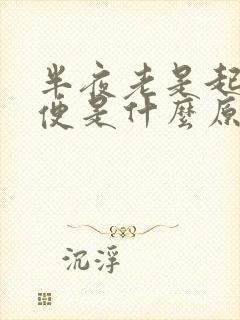 半夜老是起
便是什麼原
沉浮